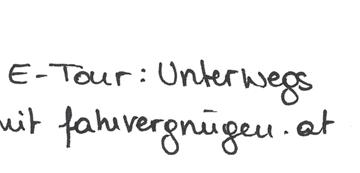 E-Tour: Unterwegs
mit fahrvergnügen.at